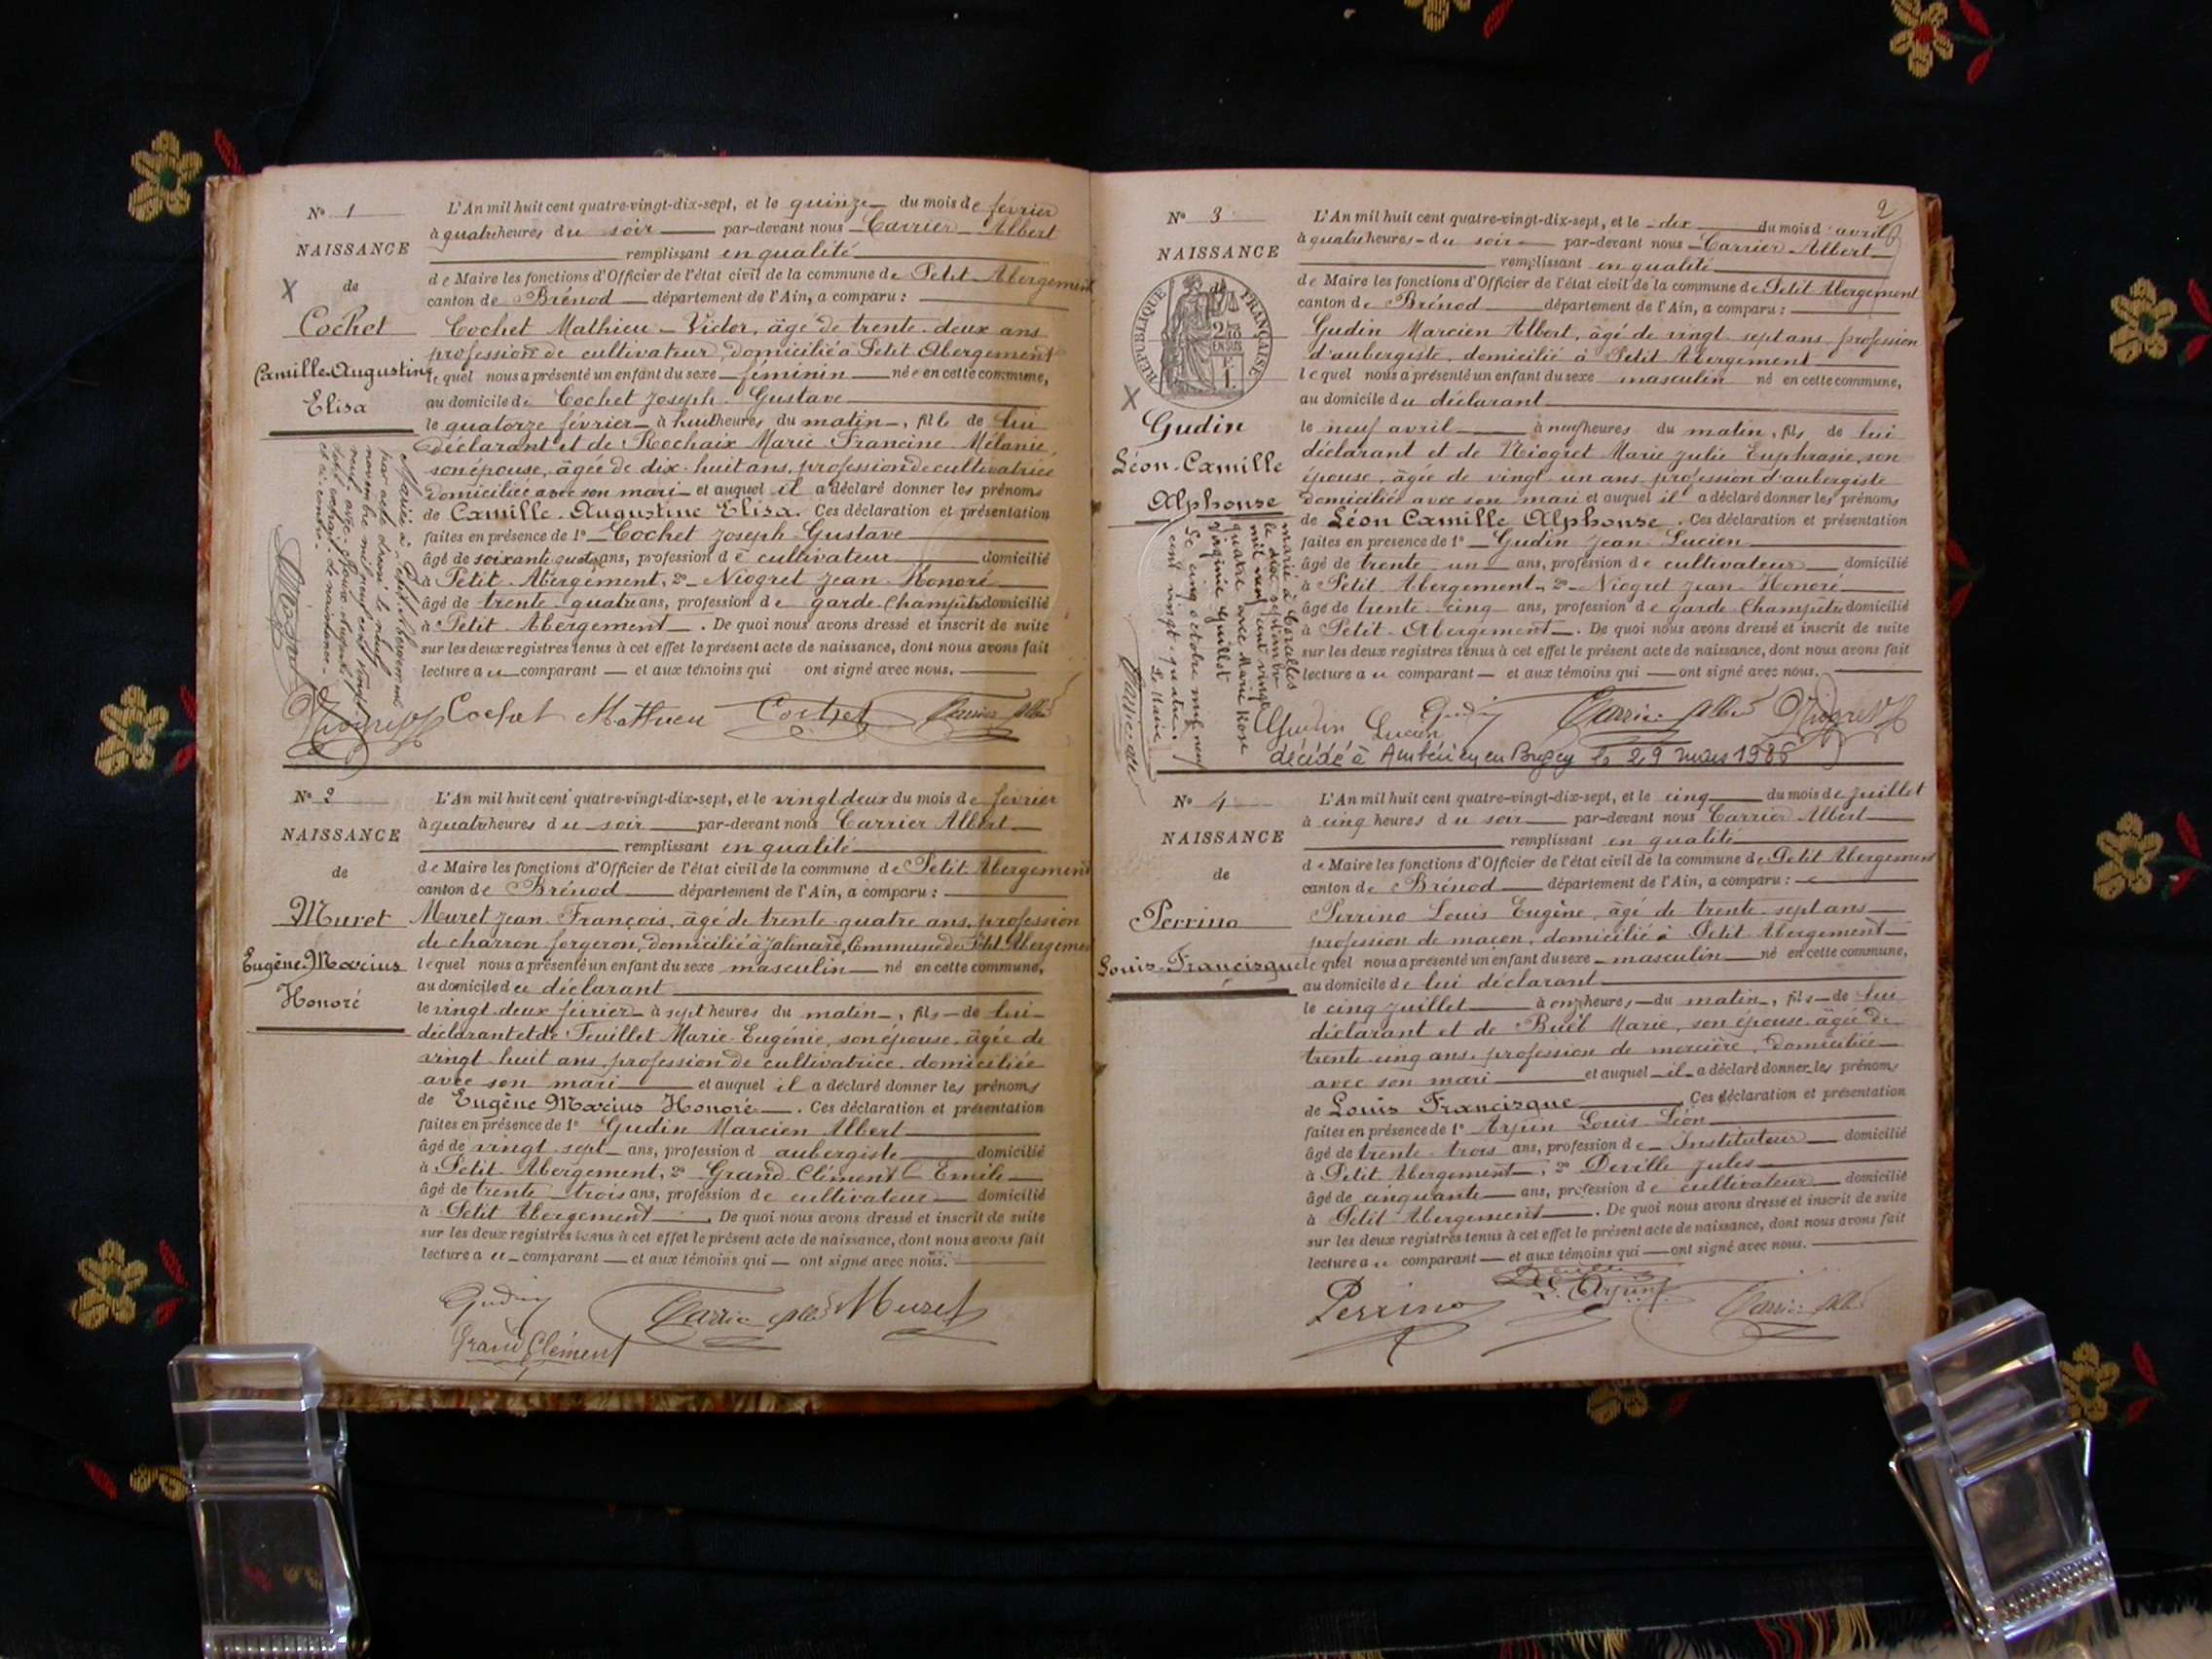 N° 1
NAISSANCE
de
X
Cochet
Camille-Augustine
Elisa
L'An mil huit cent quatre-vingt-dix-sept, et le quinze du mois de février
à quatre heures du soir par-devant nous Carrier Albert
remplissant en qualité
de Maire les fonctions d'Officier de l'état civil de la commune de Petit Abergement
canton de Brénod département de l'Ain, a comparu :
Cochet Mathieu-Victor, âgé de trente-deux ans
profession de cultivateur, domicilié à Petit Abergement
lequel nous a présenté un enfant du sexe féminin née en cette commune,
au domicile de Cochet Joseph-Gustave
le quatorze février à huit heures du matin, fille de lui
déclarant et de Rochaix Marie-Francine-Mélanie,
son épouse, âgée de dix-huit ans, profession de cultivatrice
domiciliée avec son mari et auquel il a déclaré donner les prénoms
de Camille-Augustine Elisa. Ces déclaration et présentation
faites en présence de 1° Cochet Joseph-Gustave
âgé de soixante quatre ans, profession de cultivateur domicilié
à Petit-Abergement, 2° Niogret Jean-Honoré
âgé de trente-quatre ans, profession de garde-Champêtre domicilié
à Petit-Abergement. De quoi nous avons dressé et inscrit de suite
sur les deux registres tenus à cet effet le présent acte de naissance, dont nous avons fait
lecture au comparant et aux témoins qui ont signé avec nous.
Mariée à Petit-Abergement
par acte dressé le neuf
novembre mil neuf cent vingt
neuf avec
Niogret Cochet Mathieu Cochet Carrier Albert
N° 2
NAISSANCE
de
Muret
Eugène-Marius
Honoré
L'An mil huit cent quatre-vingt-dix-sept, et le vingt deux du mois de février
à quatre heures du soir par-devant nous Carrier Albert
remplissant en qualité
de Maire les fonctions d'Officier de l'état civil de la commune de Petit Abergement
canton de Brénod département de l'Ain, a comparu :
Muret Jean-François, âgé de trente-quatre ans, profession
de charron forgeron, domicilié à Jalinard, Commune de Petit Abergement
lequel nous a présenté un enfant du sexe masculin né en cette commune,
au domicile du déclarant
le vingt-deux février à sept heures du matin, fils de lui
déclarant et de Feuillet Marie-Eugénie, son épouse, âgée de
vingt-huit ans, profession de cultivatrice, domiciliée
avec son mari et auquel il a déclaré donner les prénoms
de Eugène Marius Honoré. Ces déclaration et présentation
faites en présence de 1° Gudin Marcien Albert
âgé de vingt-sept ans, profession d aubergiste domicilié
à Petit-Abergement, 2° Grand-Clément Emile
âgé de trente-trois ans, profession de cultivateur domicilié
à Petit Abergement. De quoi nous avons dressé et inscrit de suite
sur les deux registres tenus à cet effet le présent acte de naissance, dont nous avons fait
lecture au comparant et aux témoins qui ont signé avec nous.
Gudin Carrier Albert Muret
Grand Clément
2
N° 3
NAISSANCE
de
RÉPUBLIQUE FRANÇAISE
X
Gudin
Léon-Camille
Alphonse
L'An mil huit cent quatre-vingt-dix-sept, et le dix du mois d'avril
à quatre heures du soir par-devant nous Carrier Albert
remplissant en qualité
de Maire les fonctions d'Officier de l'état civil de la commune de Petit Abergement
canton de Brénod département de l'Ain, a comparu :
Gudin Marcien Albert, âgé de vingt-sept ans, profession
d'aubergiste, domicilié à Petit Abergement
lequel nous a présenté un enfant du sexe masculin né en cette commune,
au domicile du déclarant
le neuf avril à neuf heures du matin, fils de lui
déclarant et de Niogret Marie Julie Euphrasie, son
épouse, âgée de vingt-un ans, profession d'aubergiste
domiciliée avec son mari et auquel il a déclaré donner les prénoms
de Léon Camille Alphonse. Ces déclaration et présentation
faites en présence de 1° Gudin Jean-Lucien
âgé de trente-un ans, profession de cultivateur domicilié
à Petit-Abergement, 2° Niogret Jean-Honoré
âgé de trente-cinq ans, profession de garde-Champêtre domicilié
à Petit-Abergement. De quoi nous avons dressé et inscrit de suite
sur les deux registres tenus à cet effet le présent acte de naissance, dont nous avons fait
lecture au comparant et aux témoins qui ont signé avec nous.
marié à Corcelles
le dix septembre
mil neuf cent vingt
quatre avec Marie Rose
Virginie Guillot
Le cinq octobre mil neuf
cent vingt-quatre
Le Maire
Gudin Lucien Gudin Carrier Albert Niogret
décédé à Ambérieu en Bugey le 29 mars 1986
N° 4
NAISSANCE
de
Perrino
Louis-Francisque
L'An mil huit cent quatre-vingt-dix-sept, et le cinq du mois de juillet
à cinq heures du soir par-devant nous Carrier Albert
remplissant en qualité
de Maire les fonctions d'Officier de l'état civil de la commune de Petit Abergement
canton de Brénod département de l'Ain, a comparu :
Perrino Louis Eugène, âgé de trente-sept ans
profession de maçon, domicilié à Petit-Abergement
lequel nous a présenté un enfant du sexe masculin né en cette commune,
au domicile de lui déclarant
le cinq juillet à onze heures du matin, fils de lui
déclarant et de Buël Marie, son épouse, âgée de
trente-cinq ans, profession de mercière, domiciliée
avec son mari et auquel il a déclaré donner les prénoms
de Louis Francisque. Ces déclaration et présentation
faites en présence de 1° Arpin Louis-Léon
âgé de trente-trois ans, profession de Instituteur domicilié
à Petit Abergement, 2° Deville Jules
âgé de cinquante ans, profession de cultivateur domicilié
à Petit-Abergement. De quoi nous avons dressé et inscrit de suite
sur les deux registres tenus à cet effet le présent acte de naissance, dont nous avons fait
lecture au comparant et aux témoins qui ont signé avec nous.
Deville
Perrino L. Arpin Carrier Albert